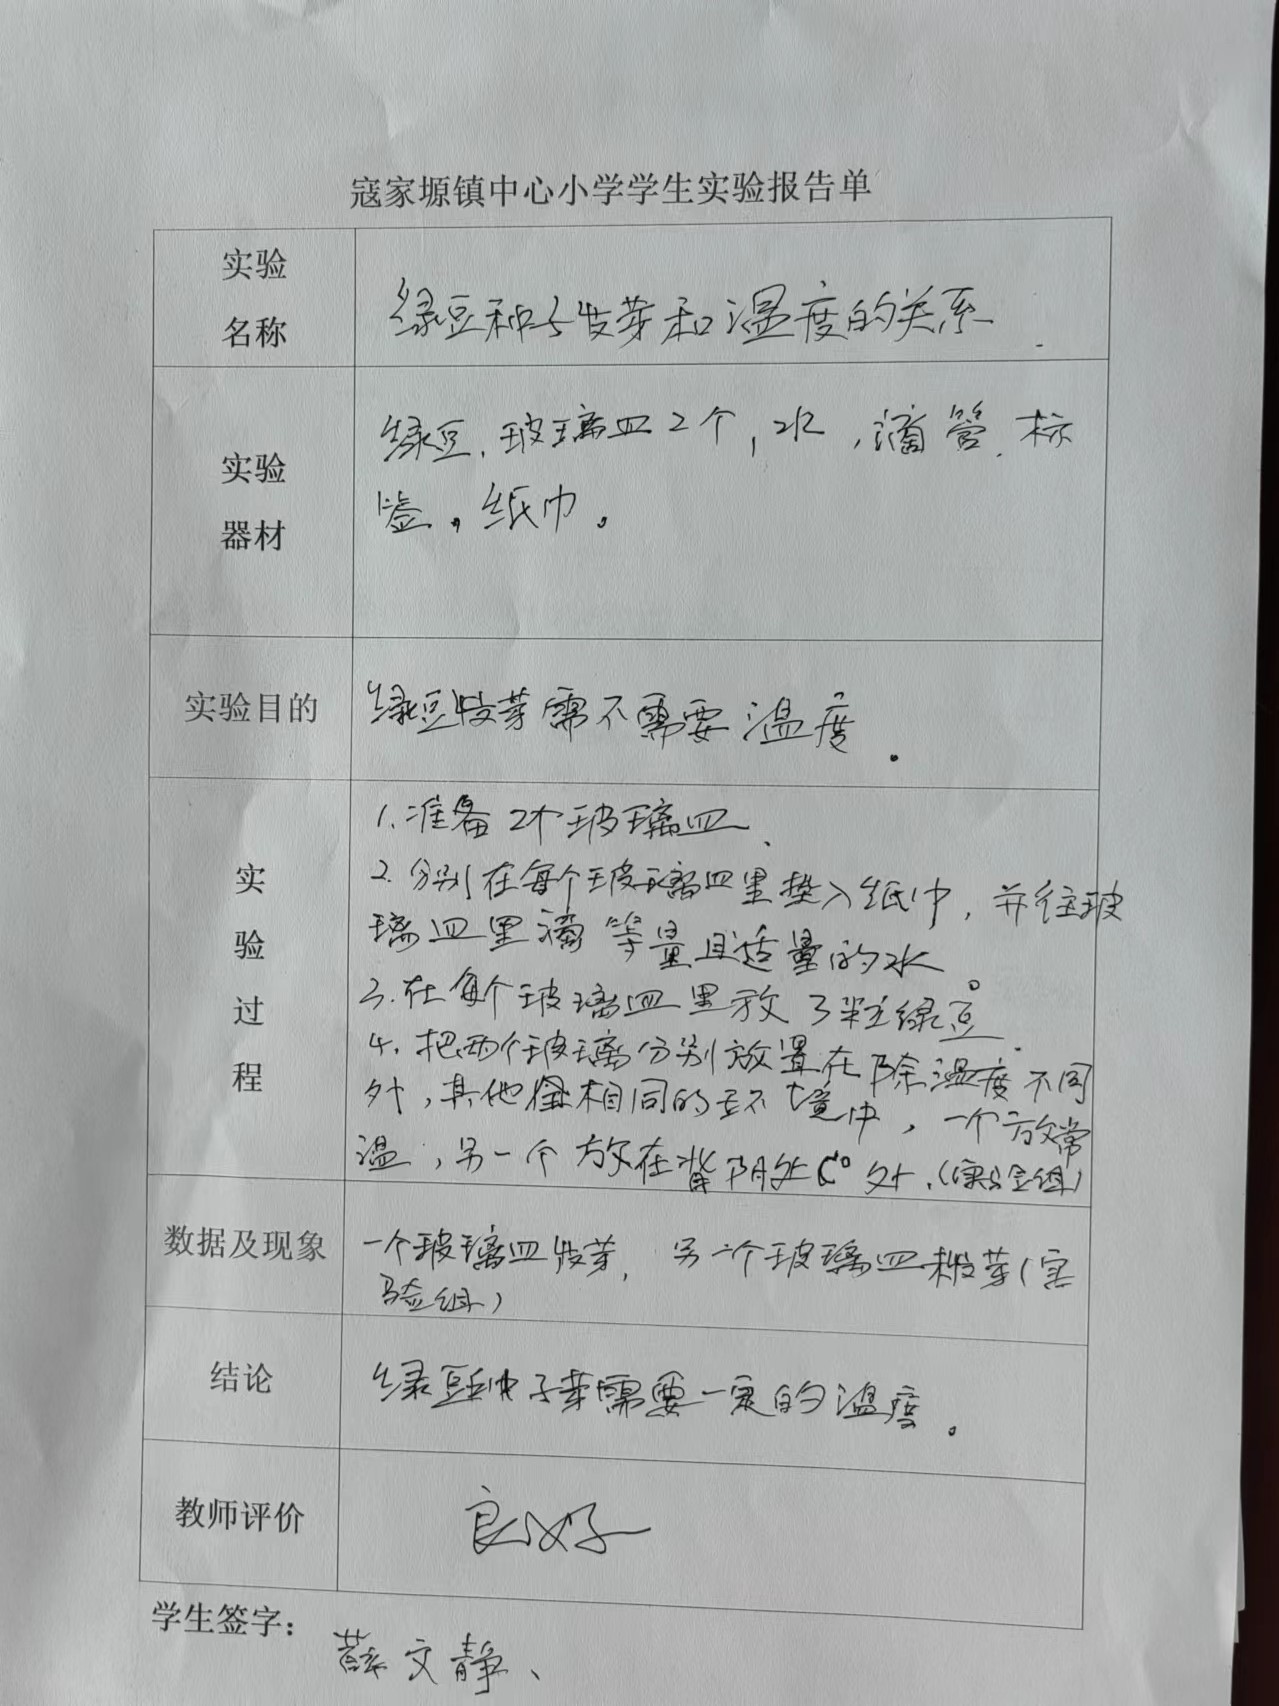 寇家塬镇中心小学学生实验报告单
实验
名称
绿豆种子发芽和温度的关系.
实验
器材
绿豆、玻璃皿2个,水,滴管、标
签。纸巾。
实验目的
绿豆发芽需不需要温度.
实
验
过
程
1.准备2个玻璃皿、
2.分别在每个玻璃皿里垫入纸巾,并往玻
璃皿里滴等量且适量的水。
3.在每个玻璃皿里放3粒绿豆.
4.把两个玻璃分别放置在除温度不同
外,其他全相同的环境中,一个放常
温,另一个放在背阴处C°外.(实验组)
数据及现象
一个玻璃皿发芽,另一个玻璃皿未发芽(实
验组)
结论
绿豆种子芽需要一定的温度。
教师评价
良好
学生签字:
文静、